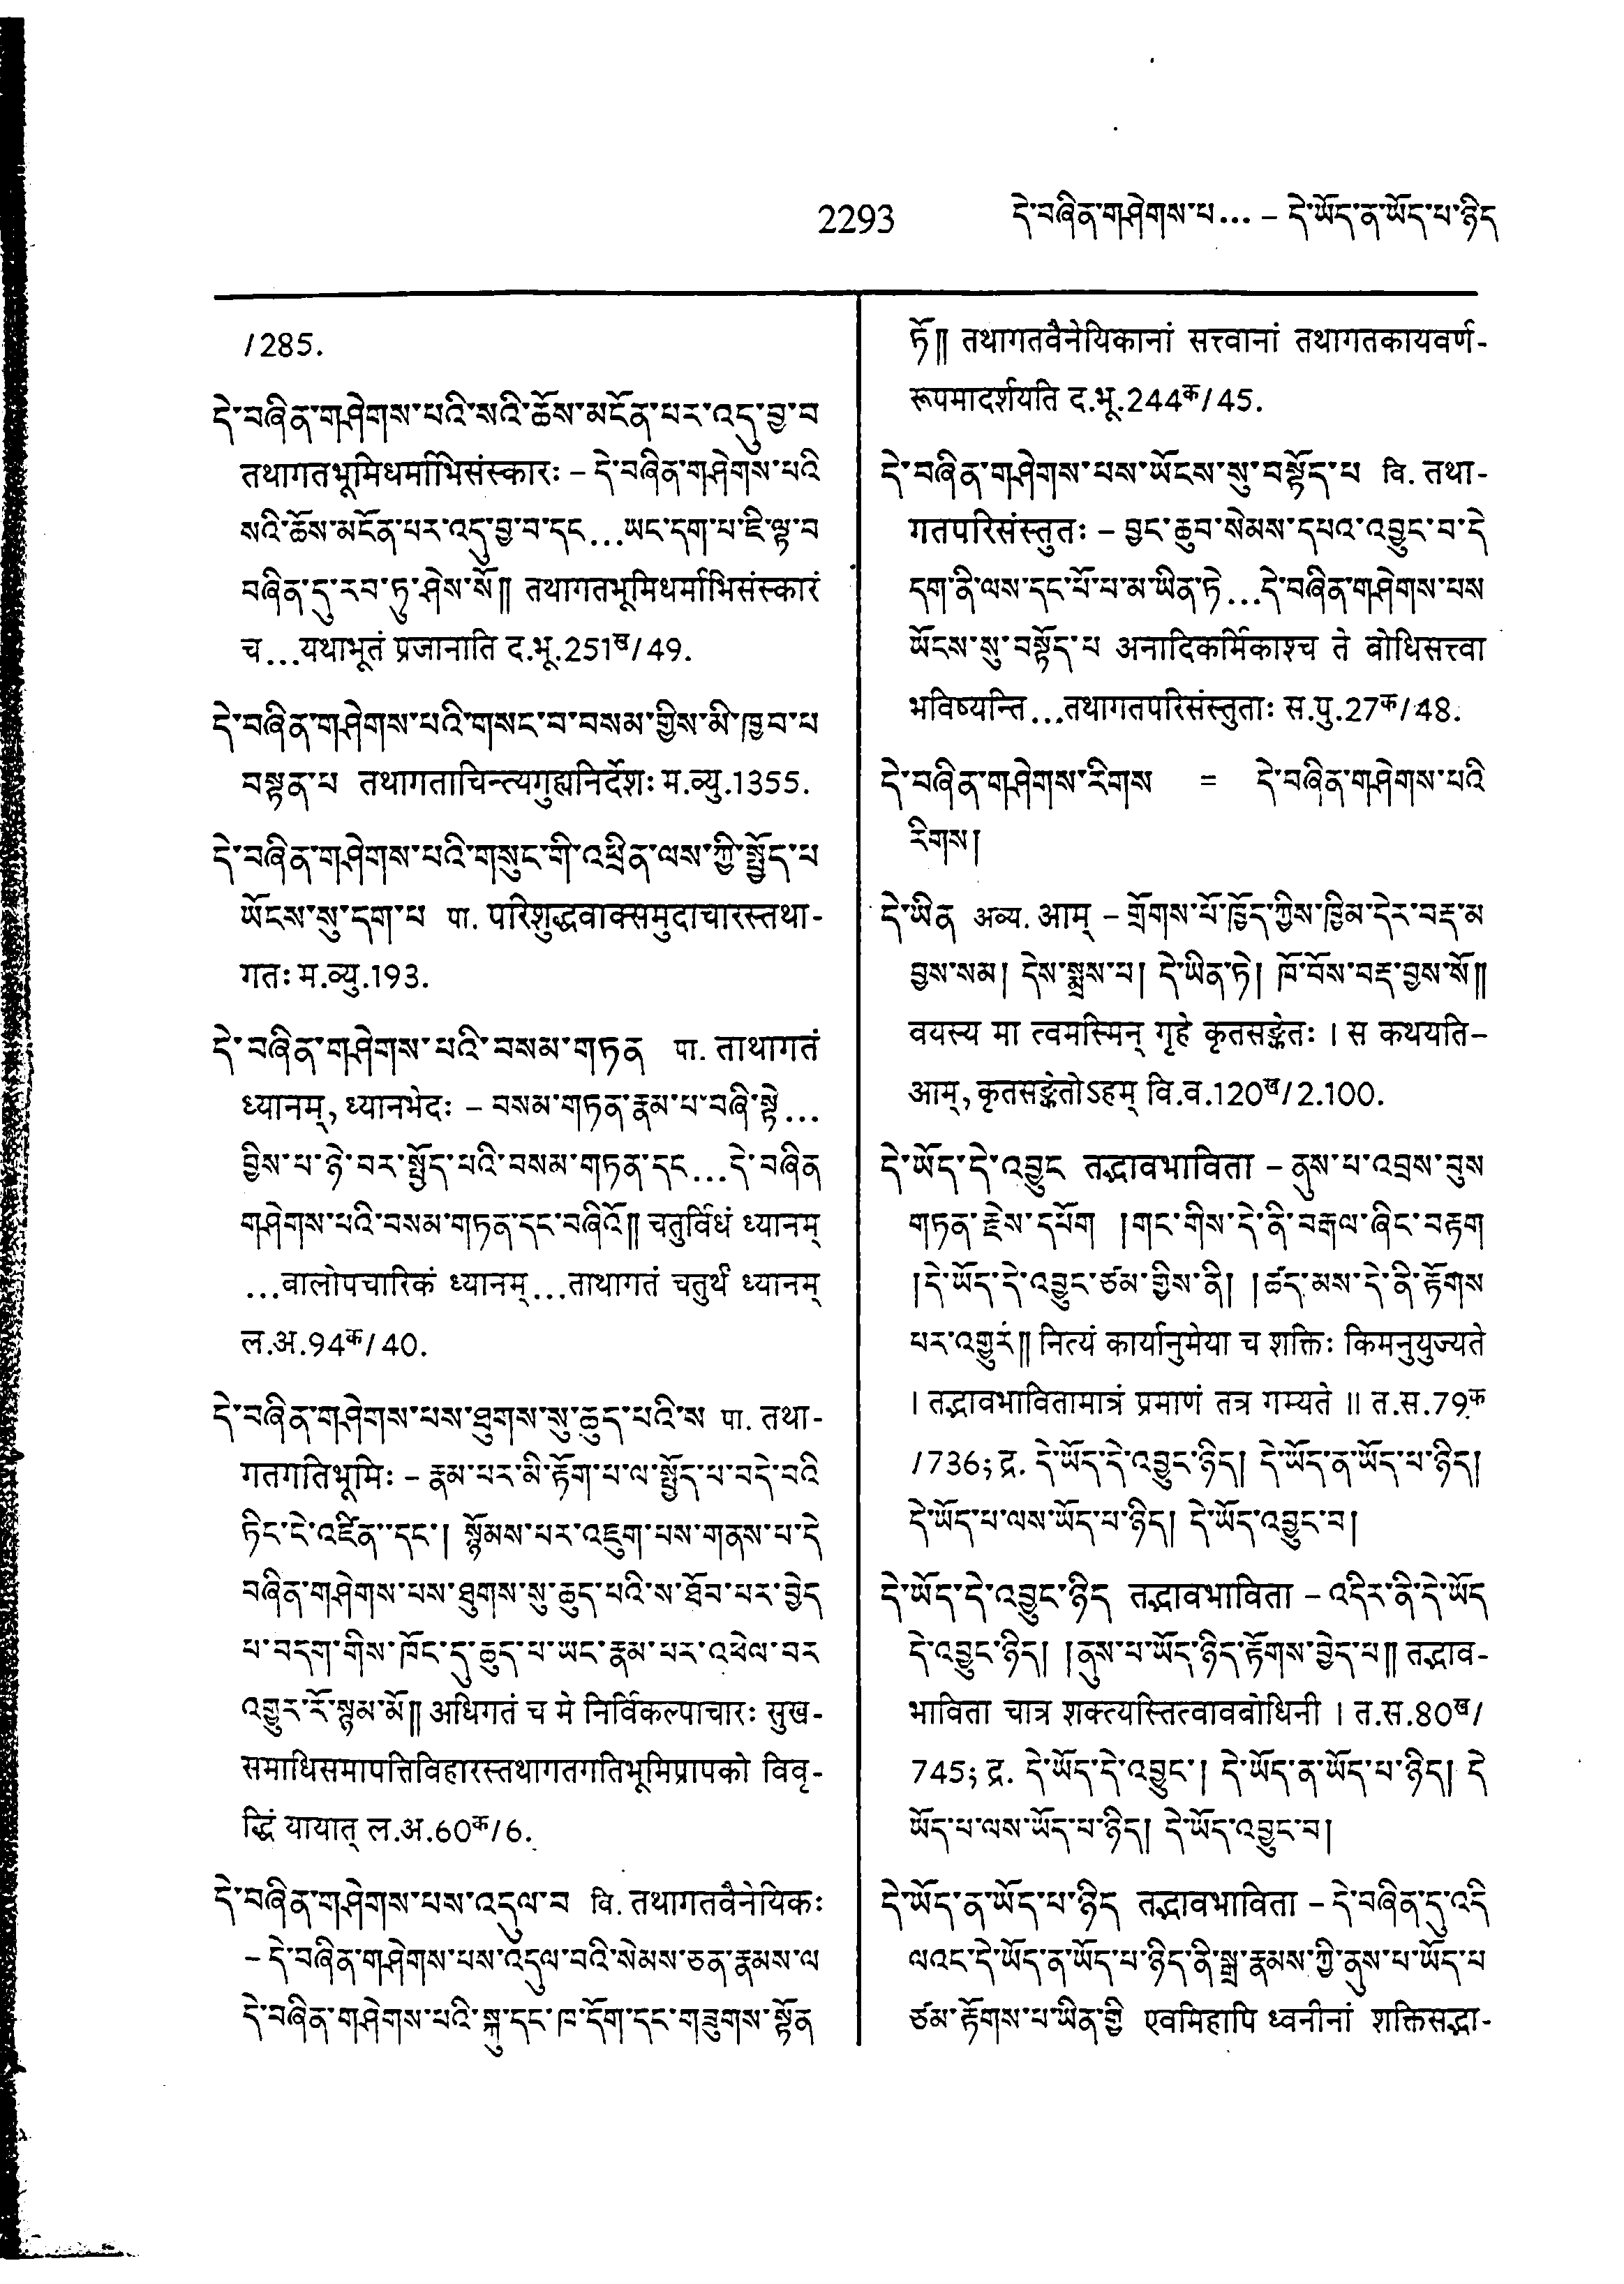 2293 དེ་བཞིན་གཤེགས་པ... – དེ་ཡོད་ན་ཡོད་པ་ཉིད
/285.
དེ་བཞིན་གཤེགས་པའི་སའི་ཆོས་མངོན་པར་འདུ་བྱ་བ
तथागतभूमिधर्माभिसंस्कारः – དེ་བཞིན་གཤེགས་པའི
སའི་ཆོས་མངོན་པར་འདུ་བྱ་བ་དང...ཡང་དག་པ་ཇི་ལྟ་བ
བཞིན་དུ་རབ་ཏུ་ཤེས་སོ།། तथागतभूमिधर्माभिसंस्कारं
च...यथाभूतं प्रजानाति द.भू.251ख/49.
དེ་བཞིན་གཤེགས་པའི་གསང་བ་བསམ་གྱིས་མི་ཁྱབ་པ
བསྟན་པ तथागताचिन्त्यगुह्यनिर्देशः म.व्यु.1355.
དེ་བཞིན་གཤེགས་པའི་གསུང་གི་འཕྲིན་ལས་ཀྱི་སྤྱོད་པ
ཡོངས་སུ་དག་པ पा. परिशुद्धवाक्समुदाचारस्तथा-
गतः म.व्यु.193.
དེ་བཞིན་གཤེགས་པའི་བསམ་གཏན पा. ताथागतं
ध्यानम्, ध्यानभेदः – བསམ་གཏན་རྣམ་པ་བཞི་སྟེ...
བྱིས་པ་ཉེ་བར་སྤྱོད་པའི་བསམ་གཏན་དང...དེ་བཞིན
གཤེགས་པའི་བསམ་གཏན་དང་བཞིའོ།། चतुर्विधं ध्यानम्
...बालोपचारिकं ध्यानम्...ताथागतं चतुर्थं ध्यानम्
ल.अ.94क/40.
དེ་བཞིན་གཤེགས་པས་ཐུགས་སུ་ཆུད་པའི་ས पा. तथा-
गतगतिभूमिः – རྣམ་པར་མི་རྟོག་པ་ལ་སྤྱོད་པ་བདེ་བའི
ཏིང་ངེ་འཛིན་དང་། སྙོམས་པར་འཇུག་པས་གནས་པ་དེ
བཞིན་གཤེགས་པས་ཐུགས་སུ་ཆུད་པའི་ས་ཐོབ་པར་བྱེད
པ་བདག་གིས་ཁོང་དུ་ཆུད་པ་ཡང་རྣམ་པར་འཕེལ་བར
འགྱུར་རོ་སྙམ་མོ།། अधिगतं च मे निर्विकल्पाचारः सुख-
समाधिसमापत्तिविहारस्तथागतगतिभूमिप्रापको विवृ-
द्धिं यायात् ल.अ.60क/6.
དེ་བཞིན་གཤེགས་པས་འདུལ་བ वि. तथागतवैनेयिकः
– དེ་བཞིན་གཤེགས་པས་འདུལ་བའི་སེམས་ཅན་རྣམས་ལ
དེ་བཞིན་གཤེགས་པའི་སྐུ་དང་ཁ་དོག་དང་གཟུགས་སྟོན
ཏོ།། तथागतवैनेयिकानां सत्त्वानां तथागतकायवर्ण-
रूपमादर्शयति द.भू.244क/45.
དེ་བཞིན་གཤེགས་པས་ཡོངས་སུ་བསྟོད་པ वि. तथा-
गतपरिसंस्तुतः – བྱང་ཆུབ་སེམས་དཔའ་འབྱུང་བ་དེ
དག་ནི་ལས་དང་པོ་པ་མ་ཡིན་ཏེ...དེ་བཞིན་གཤེགས་པས
ཡོངས་སུ་བསྟོད་པ अनादिकर्मिकाश्च ते बोधिसत्त्वा
भविष्यन्ति...तथागतपरिसंस्तुताः स.पु.27क/48.
དེ་བཞིན་གཤེགས་རིགས = དེ་བཞིན་གཤེགས་པའི
རིགས།
དེ་ཡིན अव्य. आम् – གྲོགས་པོ་ཁྱོད་ཀྱིས་ཁྱིམ་དེར་བརྡ་མ
བྱས་སམ། དེས་སྨྲས་པ། དེ་ཡིན་ཏེ། ཁོ་བོས་བརྡ་བྱས་སོ།།
वयस्य मा त्वमस्मिन् गृहे कृतसङ्केतः । स कथयति–
आम्, कृतसङ्केतोऽहम् वि.व.120ख/2.100.
དེ་ཡོད་དེ་འབྱུང तद्भावभाविता – ནུས་པ་འབྲས་བུས
གཏན་རྗེས་དཔོག །གང་གིས་དེ་ནི་བརྒལ་ཞིང་བརྟག
།དེ་ཡོད་དེ་འབྱུང་ཙམ་གྱིས་ནི། །ཚད་མས་དེ་ནི་རྟོགས
པར་འགྱུར།། नित्यं कार्यानुमेया च शक्तिः किमनुयुज्यते
। तद्भावभावितामात्रं प्रमाणं तत्र गम्यते ॥ त.स.79क
/736; द्र. དེ་ཡོད་དེ་འབྱུང་ཉིད། དེ་ཡོད་ན་ཡོད་པ་ཉིད།
དེ་ཡོད་པ་ལས་ཡོད་པ་ཉིད། དེ་ཡོད་འབྱུང་བ།
དེ་ཡོད་དེ་འབྱུང་ཉིད तद्भावभाविता – འདིར་ནི་དེ་ཡོད
དེ་འབྱུང་ཉིད། །ནུས་པ་ཡོད་ཉིད་རྟོགས་བྱེད་པ།། तद्भाव-
भाविता चात्र शक्त्यस्तित्वावबोधिनी । त.स.80ख/
745; द्र. དེ་ཡོད་དེ་འབྱུང་། དེ་ཡོད་ན་ཡོད་པ་ཉིད། དེ
ཡོད་པ་ལས་ཡོད་པ་ཉིད། དེ་ཡོད་འབྱུང་བ།
དེ་ཡོད་ན་ཡོད་པ་ཉིད तद्भावभाविता – དེ་བཞིན་དུ་འདི
ལའང་དེ་ཡོད་ན་ཡོད་པ་ཉིད་ནི་སྒྲ་རྣམས་ཀྱི་ནུས་པ་ཡོད་པ
ཙམ་རྟོགས་པ་ཡིན་གྱི एवमिहापि ध्वनीनां शक्तिसद्भा-